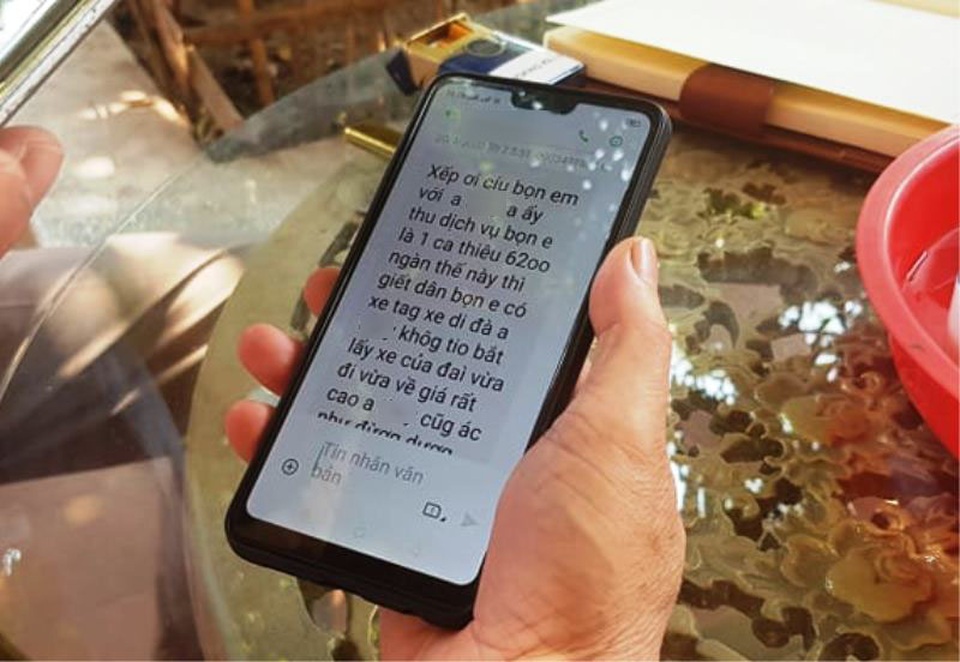 Xếp ơi cíu bọn em
với a a ấy
thu dịch vụ bọn e
là 1 ca thiêu 62oo
ngàn thế này thì
giết dân bọn e có
xe tag xe di đà a
khôg tio bắt
lấy xe của đaì vừa
đi vừa về giá rất
cao a cũg ác
Tin nhắn văn
bản